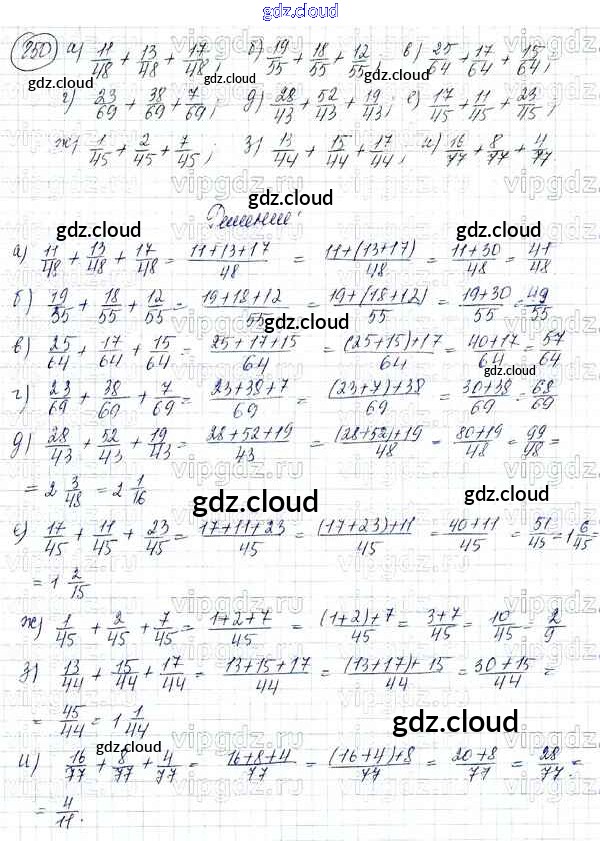 gdz.cloud
250) а) 11/48 + 13/48 + 17/48; б) 19/55 + 18/55 + 12/55; в) 25/64 + 17/64 + 15/64;
г) 23/69 + 38/69 + 7/69; д) 28/43 + 52/43 + 19/43; е) 17/45 + 11/45 + 23/45;
ж) 1/45 + 2/45 + 7/45; з) 13/44 + 15/44 + 17/44; и) 16/77 + 8/77 + 4/77
gdz.cloud gdz.cloud
Решение:
а) 11/48 + 13/48 + 17/48 = (11+13+17)/48 = (11+(13+17))/48 = (11+30)/48 = 41/48
б) 19/55 + 18/55 + 12/55 = (19+18+12)/55 = (19+(18+12))/55 = (19+30)/55 = 49/55
в) 25/64 + 17/64 + 15/64 = (25+17+15)/64 = ((25+15)+17)/64 = (40+17)/64 = 57/64
г) 23/69 + 38/69 + 7/69 = (23+38+7)/69 = ((23+7)+38)/69 = (30+38)/69 = 68/69
д) 28/43 + 52/43 + 19/43 = (28+52+19)/43 = ((28+52)+19)/48 = (80+19)/48 = 99/98 =
= 2 3/48 = 2 1/16
gdz.cloud gdz.cloud
е) 17/45 + 11/45 + 23/45 = (17+11+23)/45 = ((17+23)+11)/45 = (40+11)/45 = 51/45 = 1 6/45 =
= 1 2/15
ж) 1/45 + 2/45 + 7/45 = (1+2+7)/45 = ((1+2)+7)/45 = (3+7)/45 = 10/45 = 2/9
з) 13/44 + 15/44 + 17/44 = (13+15+17)/44 = ((13+17)+15)/44 = (30+15)/44 =
= 45/44 = 1 1/44
gdz.cloud
и) 16/77 + 8/77 + 4/77 = (16+8+4)/77 = ((16+4)+8)/77 = (20+8)/77 = 28/77 =
= 4/11.